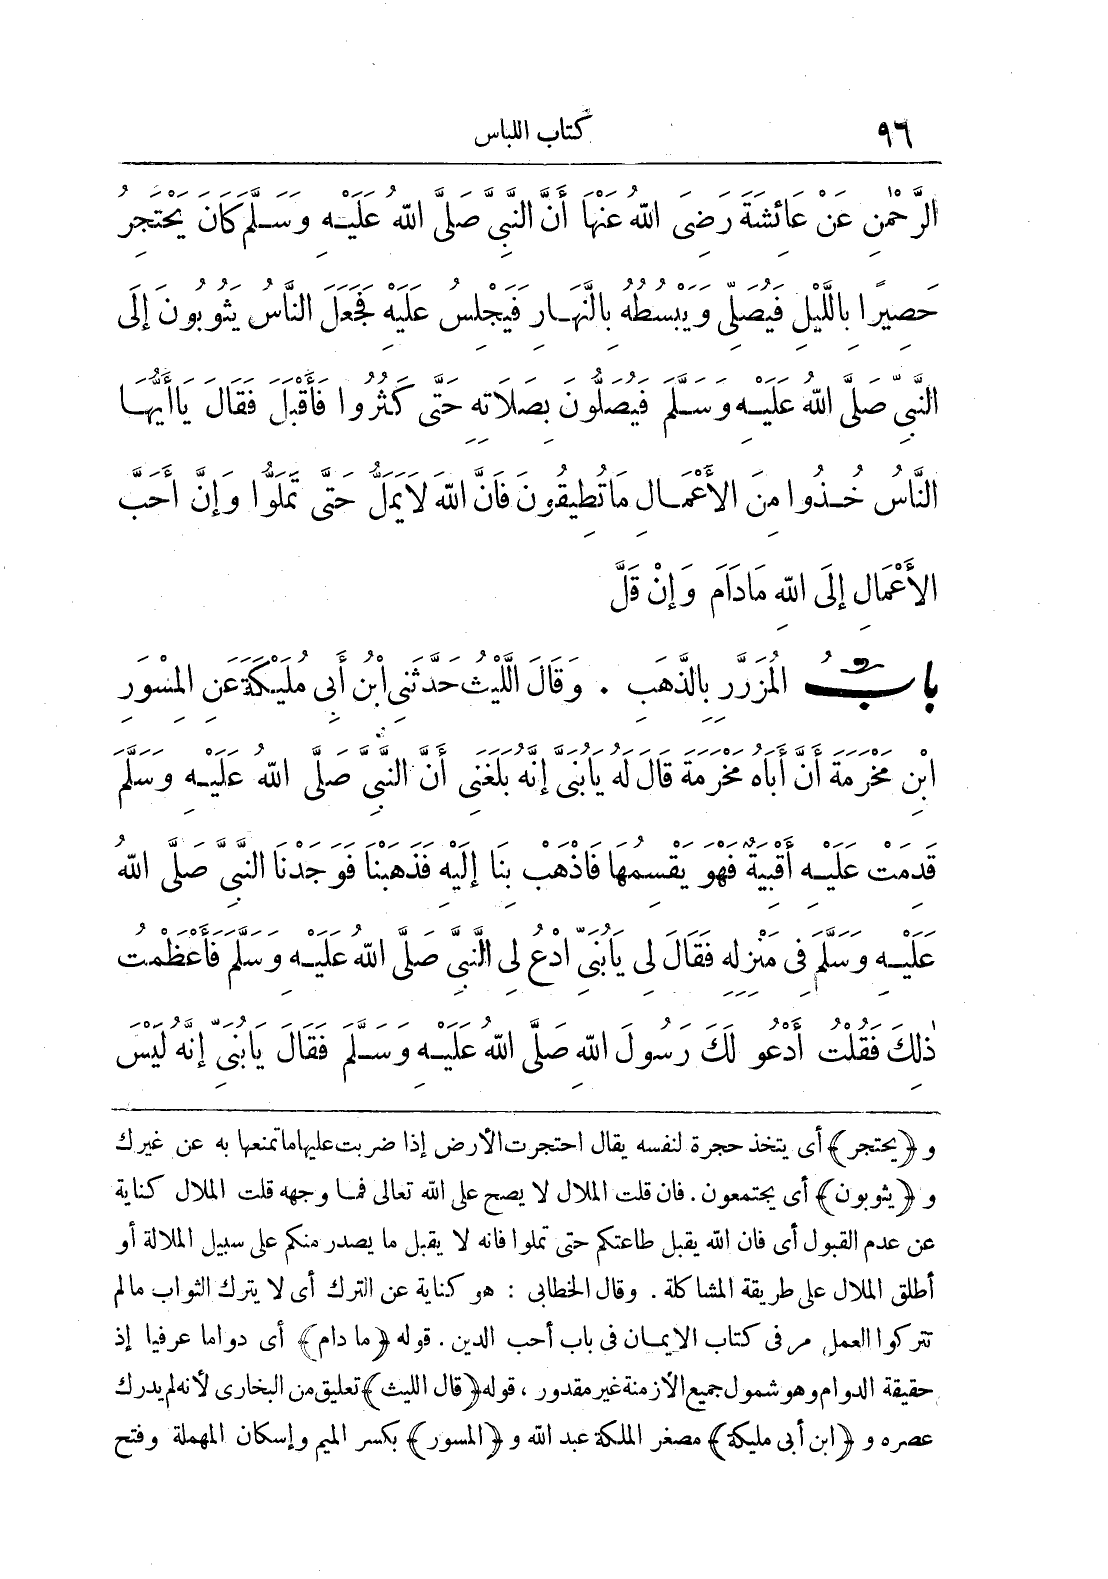 ٩٦ كتاب اللباس
الرَّحْمٰنِ عَنْ عَائِشَةَ رَضِىَ اللهُ عَنْهَا أَنَّ النَّبِىَّ صَلَّى اللهُ عَلَيْهِ وَسَلَّمَ كَانَ يَحْتَجِرُ
حَصِيرًا بِاللَّيْلِ فَيُصَلِّى وَيَبْسُطُهُ بِالنَّهَارِ فَيَجْلِسُ عَلَيْهِ فَجَعَلَ النَّاسُ يَثُوبُونَ إِلَى
النَّبِىِّ صَلَّى اللهُ عَلَيْهِ وَسَلَّمَ فَيُصَلُّونَ بِصَلَاتِهِ حَتَّى كَثُرُوا فَأَقْبَلَ فَقَالَ يَا أَيُّهَا
النَّاسُ خُذُوا مِنَ الأَعْمَالِ مَا تُطِيقُونَ فَانَّ اللهَ لاَ يَمَلُّ حَتَّى تَمَلُّوا وَإِنَّ أَحَبَّ
الأَعْمَالِ إِلَى اللهِ مَا دَامَ وَإِنْ قَلَّ
بابُ المُزَرَّرِ بِالذَّهَبِ . وَقَالَ اللَّيْثُ حَدَّثَنِى ابْنُ أَبِى مُلَيْكَةَ عَنِ المِسْوَرِ
ابْنِ مَخْرَمَةَ أَنَّ أَبَاهُ مَخْرَمَةَ قَالَ لَهُ يَا بُنَىَّ إِنَّهُ بَلَغَنِى أَنَّ النَّبِىَّ صَلَّى اللهُ عَلَيْهِ وَسَلَّمَ
قَدِمَتْ عَلَيْهِ أَقْبِيَةٌ فَهْوَ يَقْسِمُهَا فَاذْهَبْ بِنَا إِلَيْهِ فَذَهَبْنَا فَوَجَدْنَا النَّبِىَّ صَلَّى اللهُ
عَلَيْهِ وَسَلَّمَ فِى مَنْزِلِهِ فَقَالَ لِى يَا بُنَىِّ ادْعُ لِى النَّبِىَّ صَلَّى اللهُ عَلَيْهِ وَسَلَّمَ فَأَعْظَمْتُ
ذٰلِكَ فَقُلْتُ أَدْعُو لَكَ رَسُولَ اللهِ صَلَّى اللهُ عَلَيْهِ وَسَلَّمَ فَقَالَ يَا بُنَىِّ إِنَّهُ لَيْسَ
و ﴿يحتجر﴾ أى يتخذ حجرة لنفسه يقال احتجرت الأرض إذا ضربت عليها ما تمنعها به عن غيرك
و ﴿يثوبون﴾ أى يجتمعون . فان قلت الملال لا يصح على الله تعالى فما وجهه قلت الملال كناية
عن عدم القبول أى فان الله يقبل طاعتكم حتى تملوا فانه لا يقبل ما يصدر منكم على سبيل الملالة أو
أطلق الملال على طريقة المشاكلة . وقال الخطابى : هو كناية عن الترك أى لا يترك الثواب ما لم
تتركوا العمل مر فى كتاب الايمان فى باب أحب الدين . قوله ﴿ما دام﴾ أى دواما عرفيا إذ
حقيقة الدوام وهو شمول جميع الأزمنة غير مقدور ، قوله ﴿قال الليث﴾ تعليق من البخارى لأنه لم يدرك
عصره و ﴿ابن أبى مليكة﴾ مصغر الملكة عبد الله و ﴿المسور﴾ بكسر الميم وإسكان المهملة وفتح